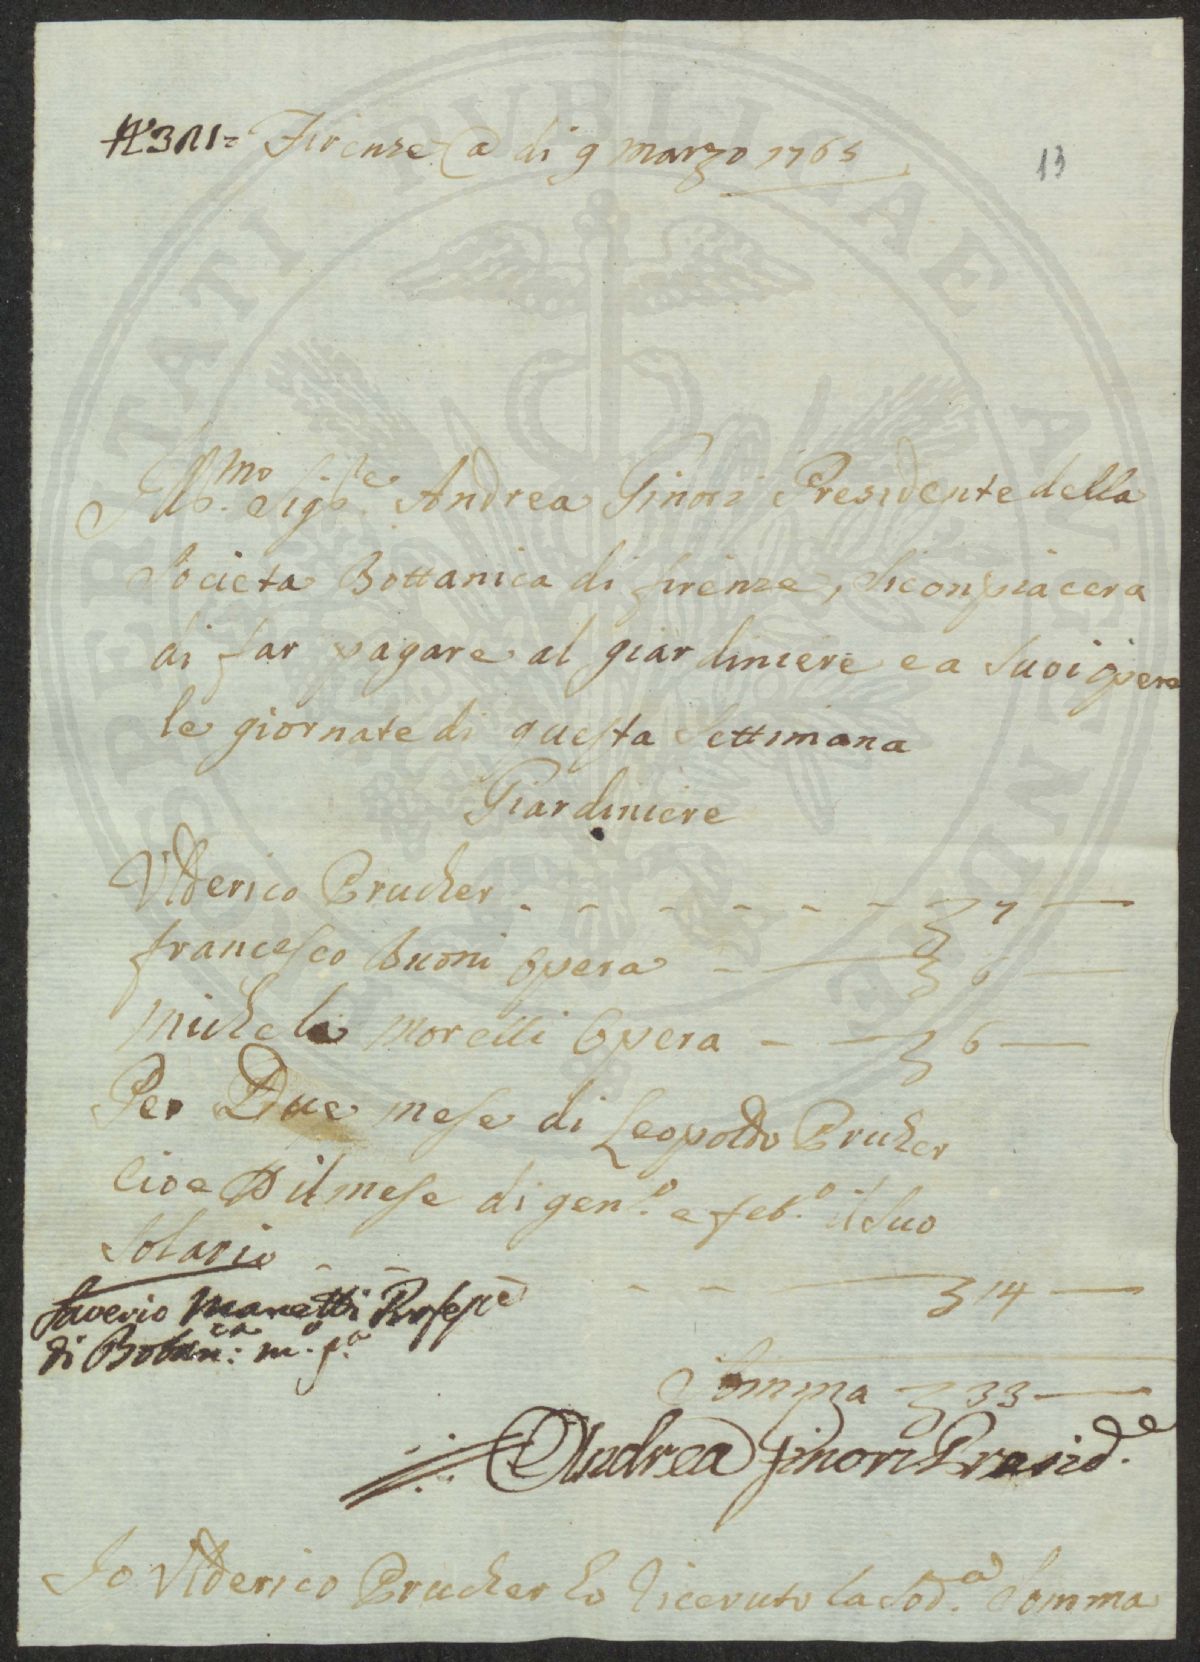 N° 311= Firenze a di 9 marzo 1765
13
Ill.mo Sig.re Andrea Ginori Presidente della
Societa Bottanica di firenze, Si conpiacera
di far pagare al giardiniere e a Suoi opere
le giornate di questa Settimana
Giardiniere
Ulderico Prucher - - - - - - - 7 —
francesco buoni opera - — 6 —
michele morelli opera - - 6 —
Per Due mese di Leopoldo Prucher
Cioe il mese di gen.o e feb.o il Suo
Solario - - - - — 14 —
Saverio Manetti Profess.e
di Botan.ca m.o p.a
Somma 33 —
Andrea Ginori Presid.e
Io Ulderico Prucher ho Riceuto la Sod.a Somma
SOSPERITATI PUBLICAE AUGENDAE